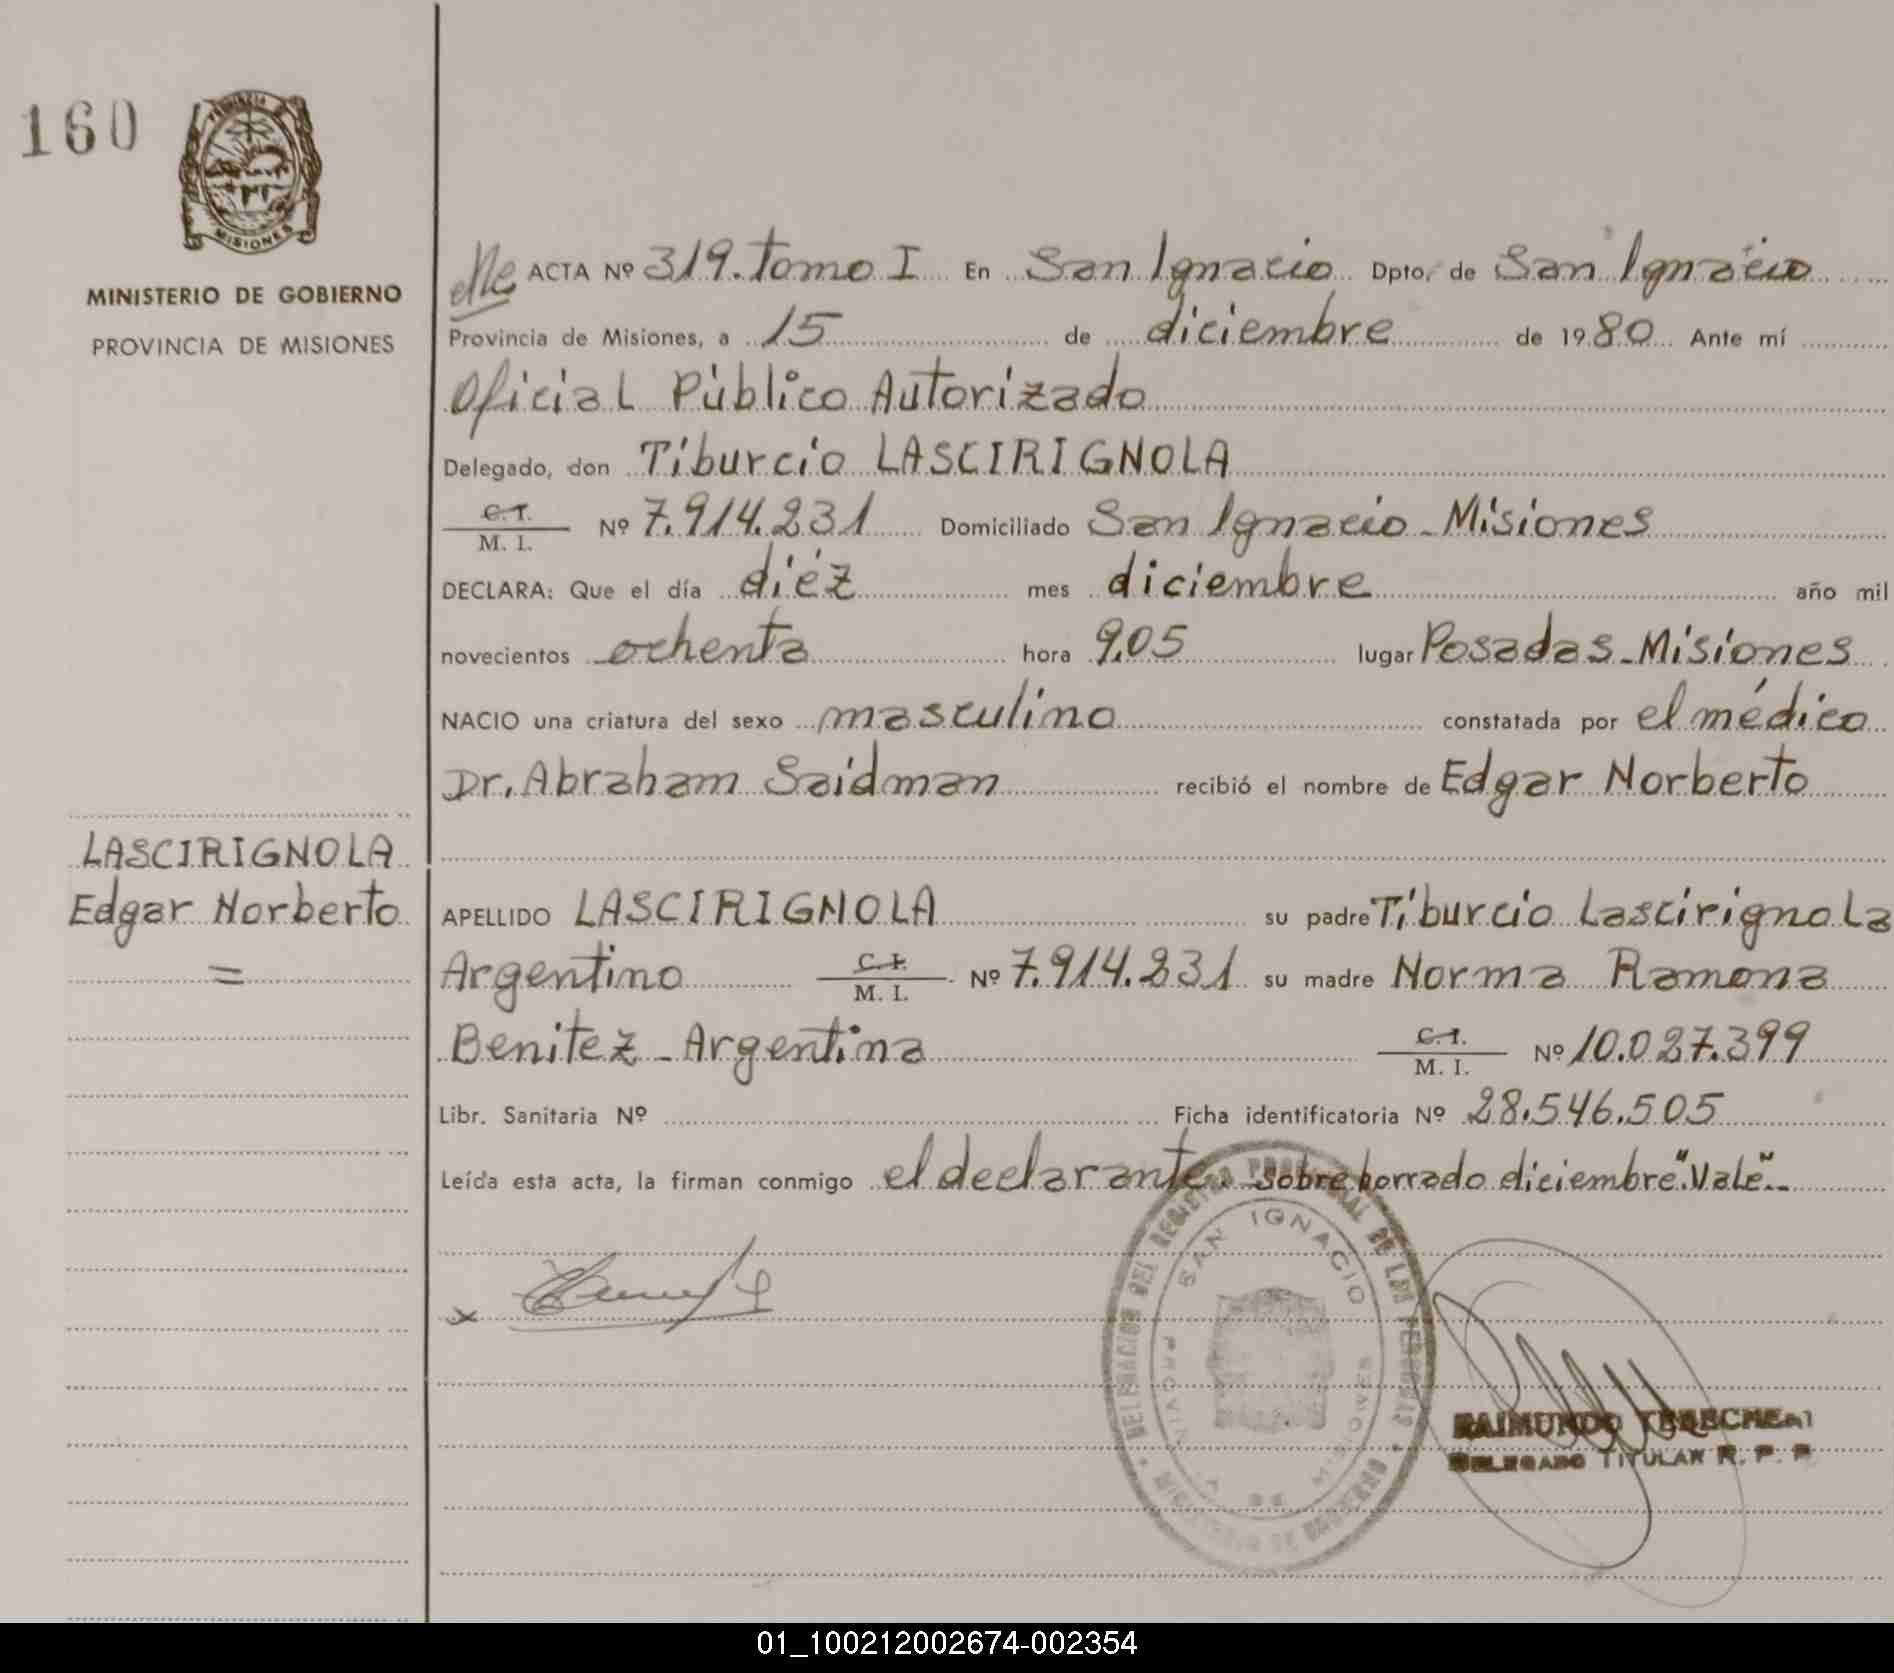 160
PROVINCIA
MISIONES
MINISTERIO DE GOBIERNO
PROVINCIA DE MISIONES
LASCIRIGNOLA
Edgar Norberto
=
ACTA Nº 319. Tomo I En San Ignacio Dpto. de San Ignacio
Provincia de Misiones, a 15 de diciembre de 1980 Ante mí
Oficial Público Autorizado
Delegado, don Tiburcio LASCIRIGNOLA
C. I.
M. I. Nº 7.914.231 Domiciliado San Ignacio - Misiones
DECLARA: Que el día diéz mes diciembre año mil
novecientos ochenta hora 9,05 lugar Posadas - Misiones
NACIO una criatura del sexo masculino constatada por el médico
Dr. Abraham Saidman recibió el nombre de Edgar Norberto
APELLIDO LASCIRIGNOLA su padre Tiburcio Lascirignola
Argentino C. I. M. I. Nº 7.914.231 su madre Norma Ramona
Benitez - Argentina C. I. M. I. Nº 10.027.399
Libr. Sanitaria Nº Ficha identificatoria Nº 28.546.505
Leída esta acta, la firman conmigo el declarante. sobre borrado diciembre "Vale".-
x
DELEGACION DEL REGISTRO PROVINCIAL DE LAS PERSONAS
SAN IGNACIO
PROVINCIA DE MISIONES
MINISTERIO DE GOBIERNO
RAIMUNDO
DELEGADO TITULAR R. P. P.
01_100212002674-002354